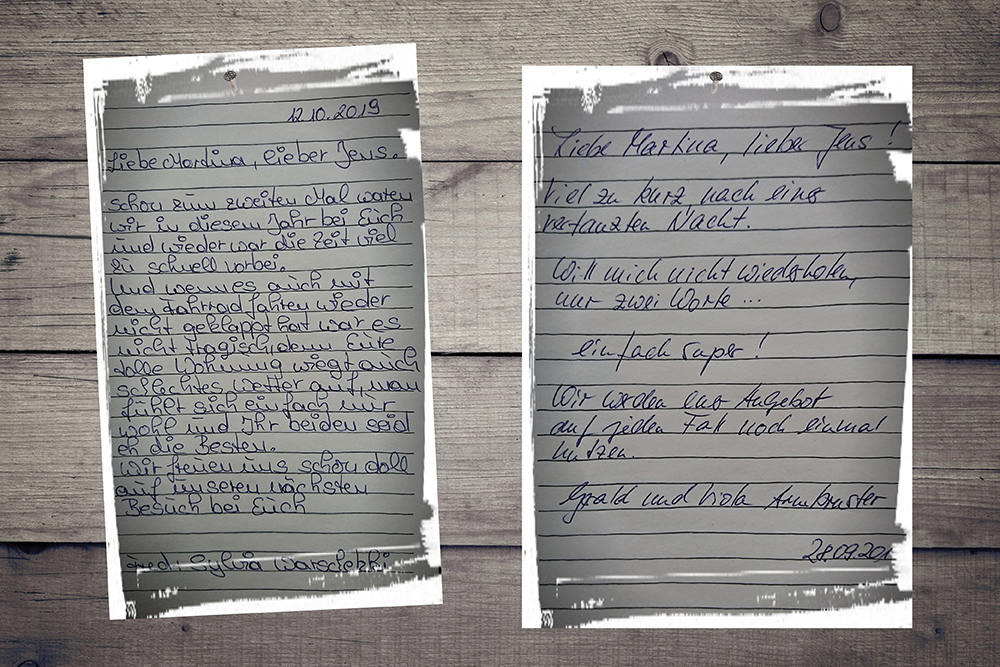 12.10.2019
Liebe Martina, lieber Jens.
schon zum zweiten Mal waren
wir in diesem Jahr bei Euch
und wieder war die Zeit viel
zu schnell vorbei.
Und wenn es auch mit
dem Fahrrad fahren wieder
nicht geklappt hat war es
nicht tragisch denn Eure
tolle Wohnung wiegt auch
schlechtes Wetter auf, man
fühlt sich einfach nur
wohl und Ihr beiden seid
eh die Besten.
Wir freuen uns schon doll
auf unseren nächsten
Besuch bei Euch
Sylvia
Liebe Martina, lieber Jens!
Viel zu kurz, nach einer
vertanzten Nacht.
Will mich nicht wiederholen,
nur zwei Worte ...
einfach super!
Wir werden euer Angebot
auf jeden Fall noch einmal
nutzen.
Gerald und Viola Armbruster
28.09.201